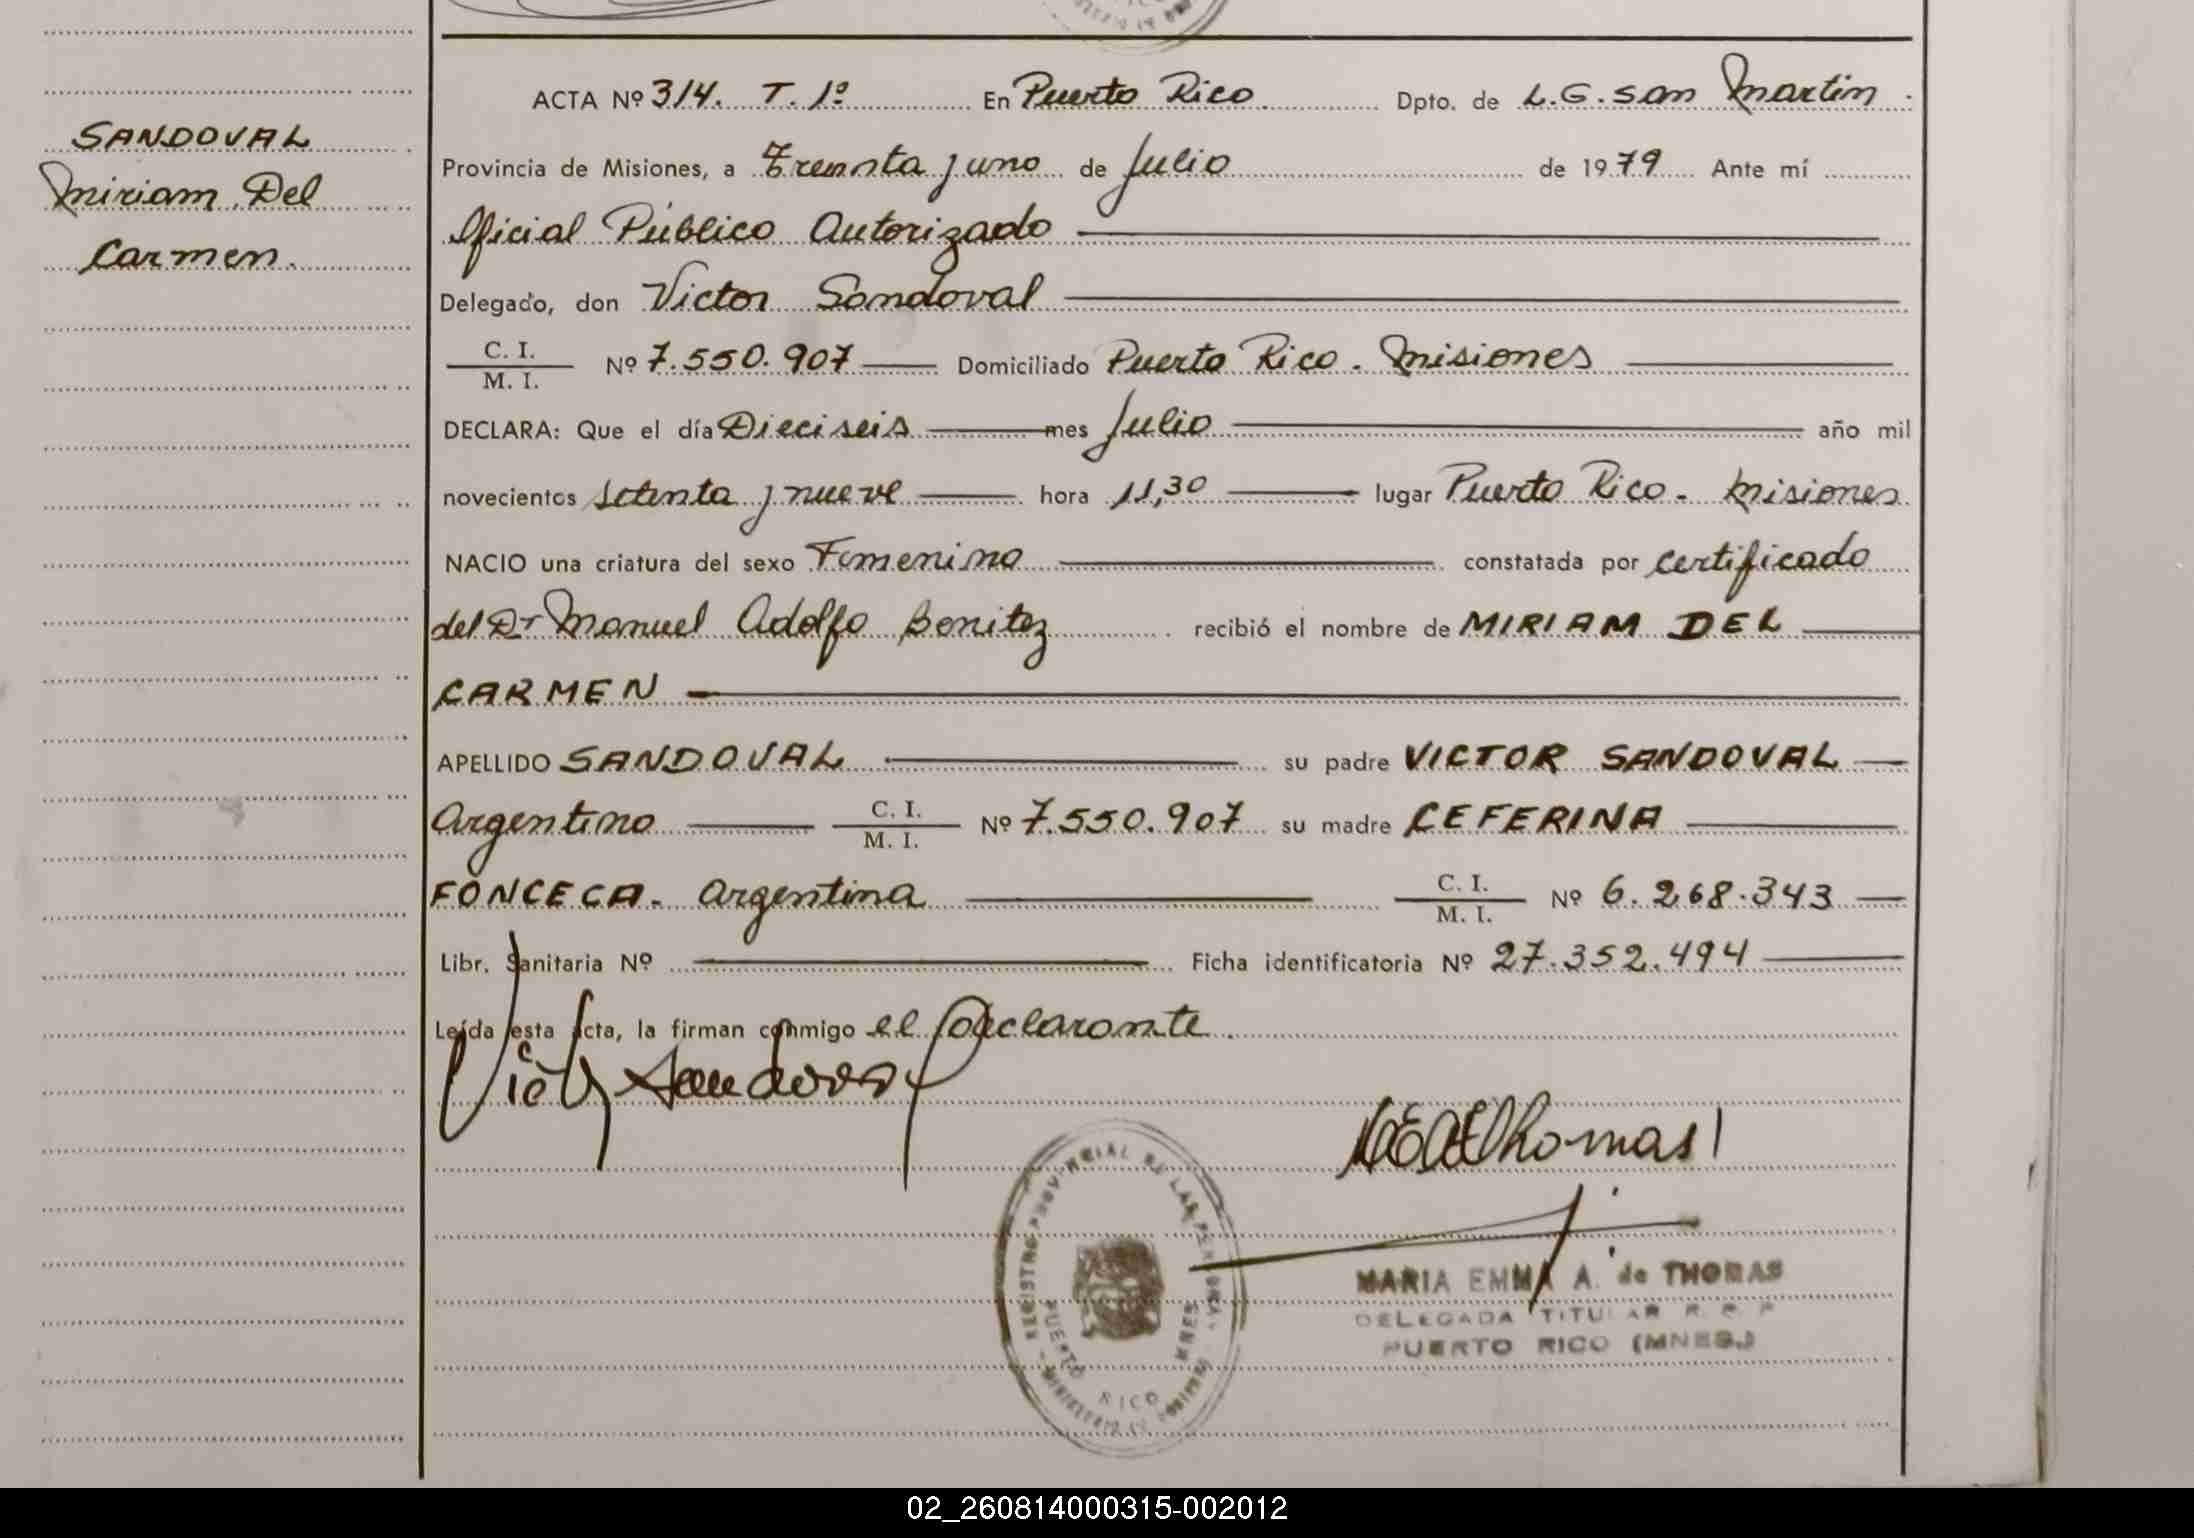 SANDOVAL
Miriam Del
Carmen.
ACTA Nº 314. T. 1º En Puerto Rico Dpto. de L.G. San Martin
Provincia de Misiones, a Treinta y uno de Julio de 1979 Ante mí
Oficial Público Autorizado
Delegado, don Victor Sandoval
C. I.
M. I. Nº 7.550.907 Domiciliado Puerto Rico. Misiones
DECLARA: Que el día Dieciseis mes Julio año mil
novecientos setenta y nueve hora 11,30 lugar Puerto Rico - Misiones
NACIO una criatura del sexo Femenino constatada por certificado
del Dr Manuel Adolfo Benitez recibió el nombre de MIRIAM DEL
CARMEN
APELLIDO SANDOVAL su padre VICTOR SANDOVAL
Argentino C. I.
M. I. Nº 7.550.907 su madre CEFERINA
FONCECA. Argentina C. I.
M. I. Nº 6.268.343
Libr. Sanitaria Nº Ficha identificatoria Nº 27.352.494
Leída esta acta, la firman conmigo el declarante
Victor Sandoval
Thomas
REGISTRO PROVINCIAL DE LAS PERSONAS
PUERTO RICO MNES
MARIA EMMA A. de THOMAS
DELEGADA TITULAR R. P. P
PUERTO RICO (MNES.)
02_260814000315-002012